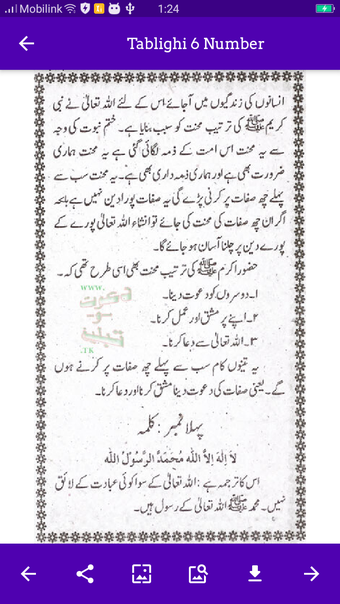 Mobilink 1:24
Tablighi 6 Number
انسانوں کی زندگیوں میں آجائے۔اس کے لئے اللہ تعالیٰ نے نبی
کریم ﷺ کی ترتیب محنت کو سبب بنایا ہے۔ ختم نبوت کی وجہ
سے یہ محنت اس امت کے ذمہ لگائی گئی ہے یہ محنت ہماری
ضرورت بھی ہے اور ہماری ذمہ داری بھی ہے۔ یہ محنت سب سے
پہلے چھ صفات پر کرنی پڑے گی یہ صفات پورا دین نہیں ہے بلکہ
اگر ان چھ صفات کی محنت کی جائے تو انشاء اللہ تعالیٰ پورے کے
پورے دین پر چلنا آسان ہو جائے گا۔
حضور اکرم ﷺ کی ترتیب محنت بھی اسی طرح تھی کہ۔
۱۔دوسروں کو دعوت دینا۔
۲۔اپنے پر مشق اور عمل کرنا۔
۳۔اللہ تعالیٰ سے دعا کرنا۔
WWW.
.TK
یہ تینوں کام سب سے پہلے چھ صفات پر کرنے ہوں
گے۔یعنی صفات کی دعوت دینا مشق کرنا اور دعا کرنا۔
پہلا نمبر : کلمہ
لَا اِلٰهَ اِلَّا اللّٰه مُحَمَّدُ الرَّسُوْلُ اللّٰه
اس کا ترجمہ ہے : اللہ تعالیٰ کے سوا کوئی عبادت کے لائق
نہیں۔ محمد ﷺ اللہ تعالیٰ کے رسول ہیں۔